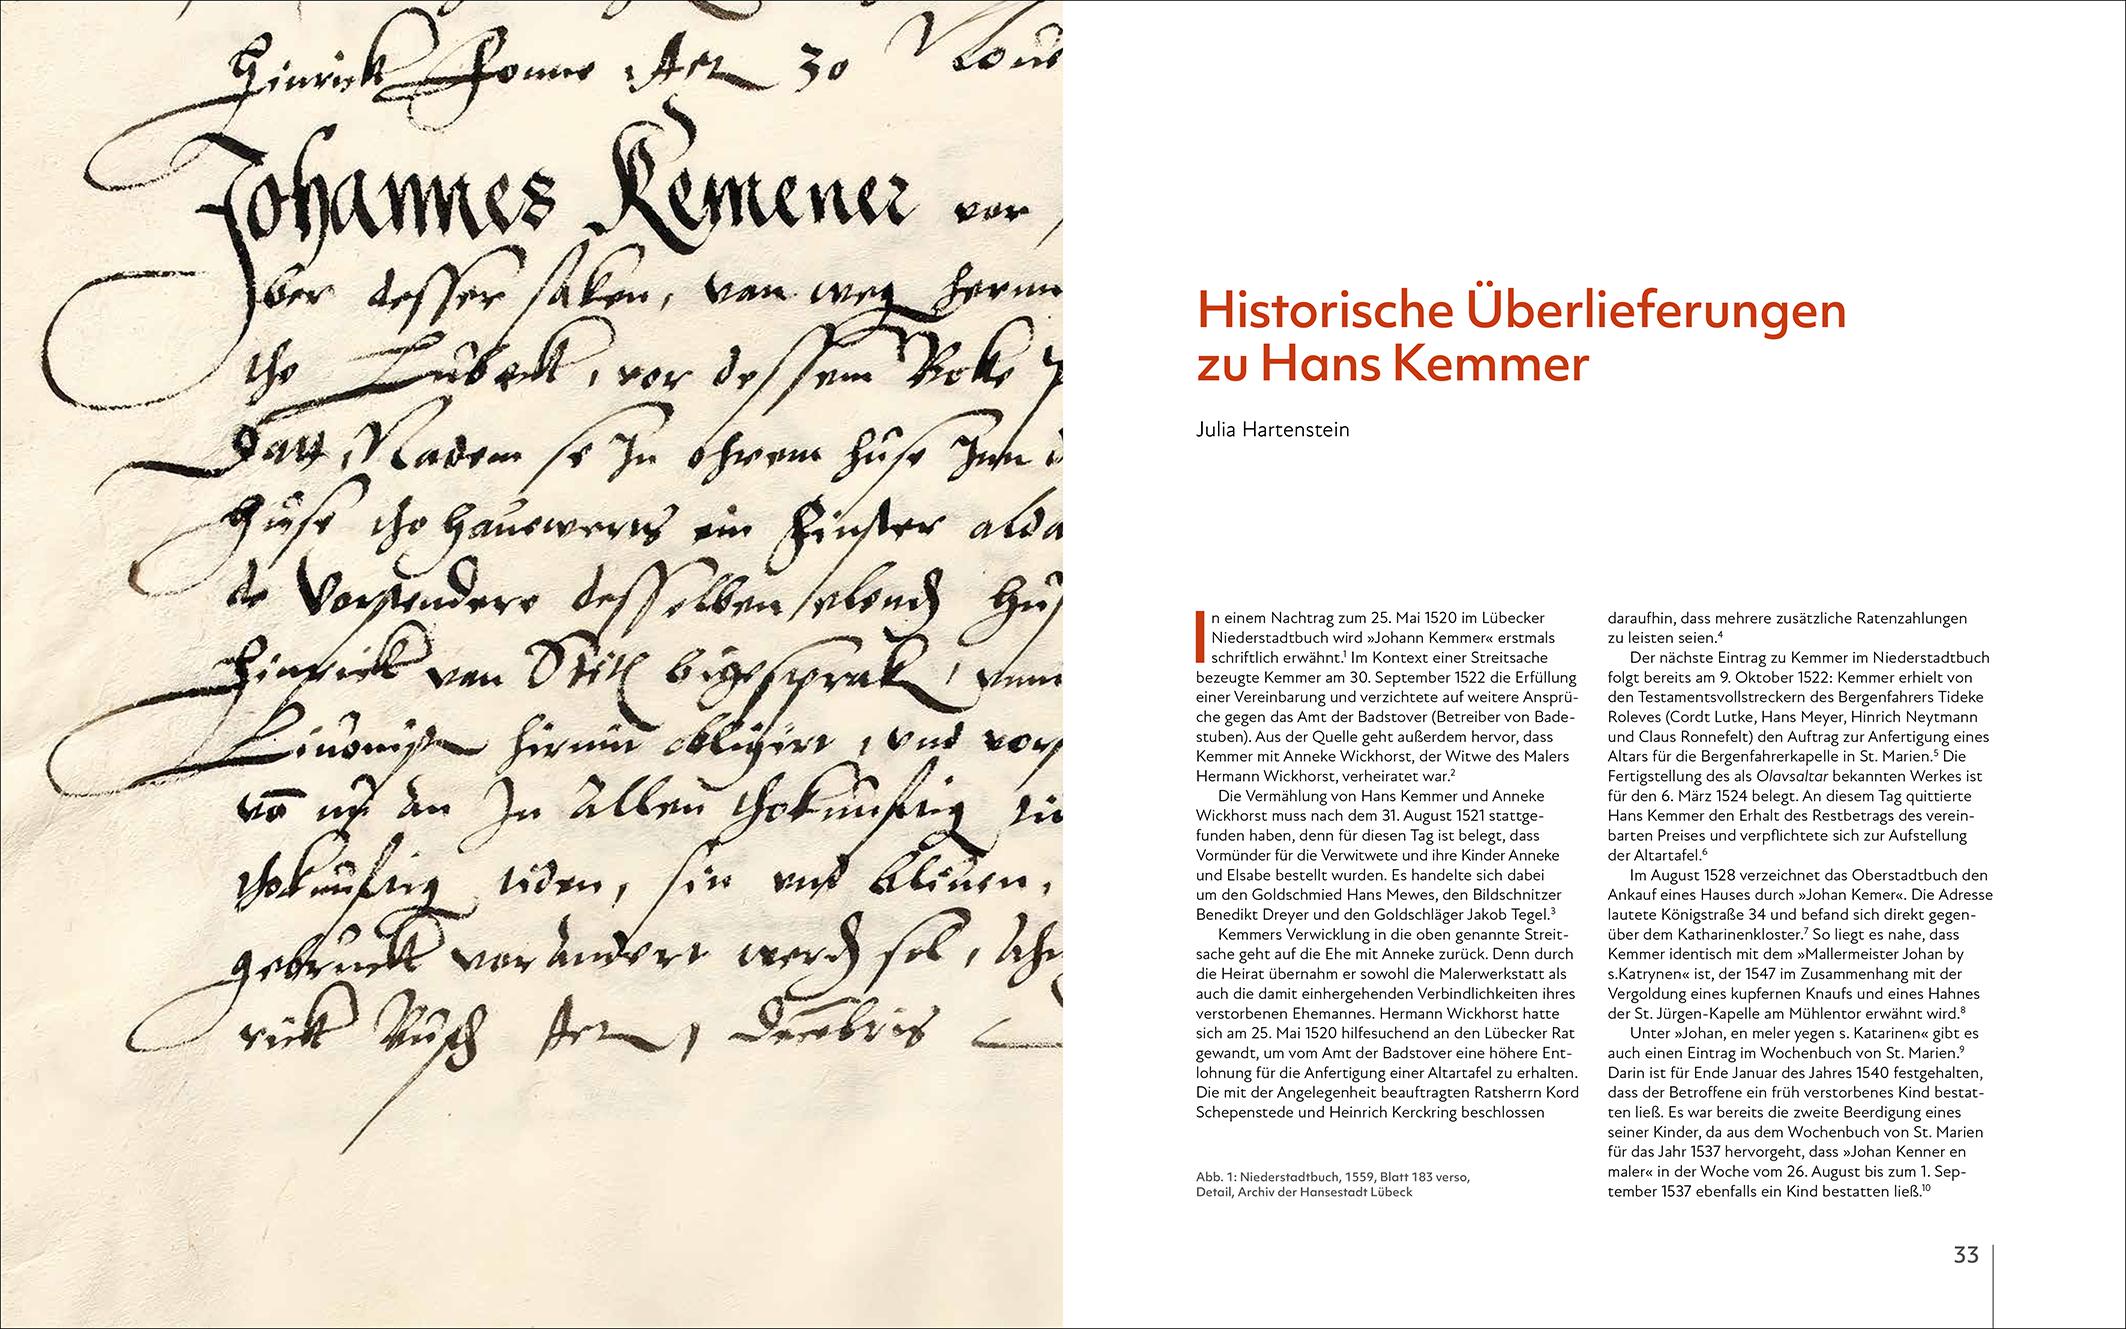 Hinrick Honne Act 30 Noue
Johannes Kemener vor
Jber desser saken, van weg herm
tho Lubeck, vor dessem Boke
Datt, Nadem se In ohrem huse Inn
Huse tho hauewerts ein Finster alda
de Vorstendere desseluen elend Huse
Hinrick van Stiten bigesprak, vnnd
hirmit obligirt, vnd
an In allen thokunftig
thokunftig tiden, sin vnd bliuen,
gebruckt vorandert werd sol,
rick Busch Act 1 Decebris
Historische Überlieferungen
zu Hans Kemmer
Julia Hartenstein
In einem Nachtrag zum 25. Mai 1520 im Lübecker
Niederstadtbuch wird »Johann Kemmer« erstmals
schriftlich erwähnt.¹ Im Kontext einer Streitsache
bezeugte Kemmer am 30. September 1522 die Erfüllung
einer Vereinbarung und verzichtete auf weitere Ansprü-
che gegen das Amt der Badstover (Betreiber von Bade-
stuben). Aus der Quelle geht außerdem hervor, dass
Kemmer mit Anneke Wickhorst, der Witwe des Malers
Hermann Wickhorst, verheiratet war.²
Die Vermählung von Hans Kemmer und Anneke
Wickhorst muss nach dem 31. August 1521 stattge-
funden haben, denn für diesen Tag ist belegt, dass
Vormünder für die Verwitwete und ihre Kinder Anneke
und Elsabe bestellt wurden. Es handelte sich dabei
um den Goldschmied Hans Mewes, den Bildschnitzer
Benedikt Dreyer und den Goldschläger Jakob Tegel.³
Kemmers Verwicklung in die oben genannte Streit-
sache geht auf die Ehe mit Anneke zurück. Denn durch
die Heirat übernahm er sowohl die Malerwerkstatt als
auch die damit einhergehenden Verbindlichkeiten ihres
verstorbenen Ehemannes. Hermann Wickhorst hatte
sich am 25. Mai 1520 hilfesuchend an den Lübecker Rat
gewandt, um vom Amt der Badstover eine höhere Ent-
lohnung für die Anfertigung einer Altartafel zu erhalten.
Die mit der Angelegenheit beauftragten Ratsherrn Kord
Schepenstede und Heinrich Kerckring beschlossen
Abb. 1: Niederstadtbuch, 1559, Blatt 183 verso,
Detail, Archiv der Hansestadt Lübeck
daraufhin, dass mehrere zusätzliche Ratenzahlungen
zu leisten seien.⁴
Der nächste Eintrag zu Kemmer im Niederstadtbuch
folgt bereits am 9. Oktober 1522: Kemmer erhielt von
den Testamentsvollstreckern des Bergenfahrers Tideke
Roleves (Cordt Lutke, Hans Meyer, Hinrich Neytmann
und Claus Ronnefelt) den Auftrag zur Anfertigung eines
Altars für die Bergenfahrerkapelle in St. Marien.⁵ Die
Fertigstellung des als Olavsaltar bekannten Werkes ist
für den 6. März 1524 belegt. An diesem Tag quittierte
Hans Kemmer den Erhalt des Restbetrags des verein-
barten Preises und verpflichtete sich zur Aufstellung
der Altartafel.⁶
Im August 1528 verzeichnet das Oberstadtbuch den
Ankauf eines Hauses durch »Johan Kemer«. Die Adresse
lautete Königstraße 34 und befand sich direkt gegen-
über dem Katharinenkloster.⁷ So liegt es nahe, dass
Kemmer identisch mit dem »Mallermeister Johan by
s.Katrynen« ist, der 1547 im Zusammenhang mit der
Vergoldung eines kupfernen Knaufs und eines Hahnes
der St. Jürgen-Kapelle am Mühlentor erwähnt wird.⁸
Unter »Johan, en meler yegen s. Katarinen« gibt es
auch einen Eintrag im Wochenbuch von St. Marien.⁹
Darin ist für Ende Januar des Jahres 1540 festgehalten,
dass der Betroffene ein früh verstorbenes Kind bestat-
ten ließ. Es war bereits die zweite Beerdigung eines
seiner Kinder, da aus dem Wochenbuch von St. Marien
für das Jahr 1537 hervorgeht, dass »Johan Kenner en
maler« in der Woche vom 26. August bis zum 1. Sep-
tember 1537 ebenfalls ein Kind bestatten ließ.¹⁰
33